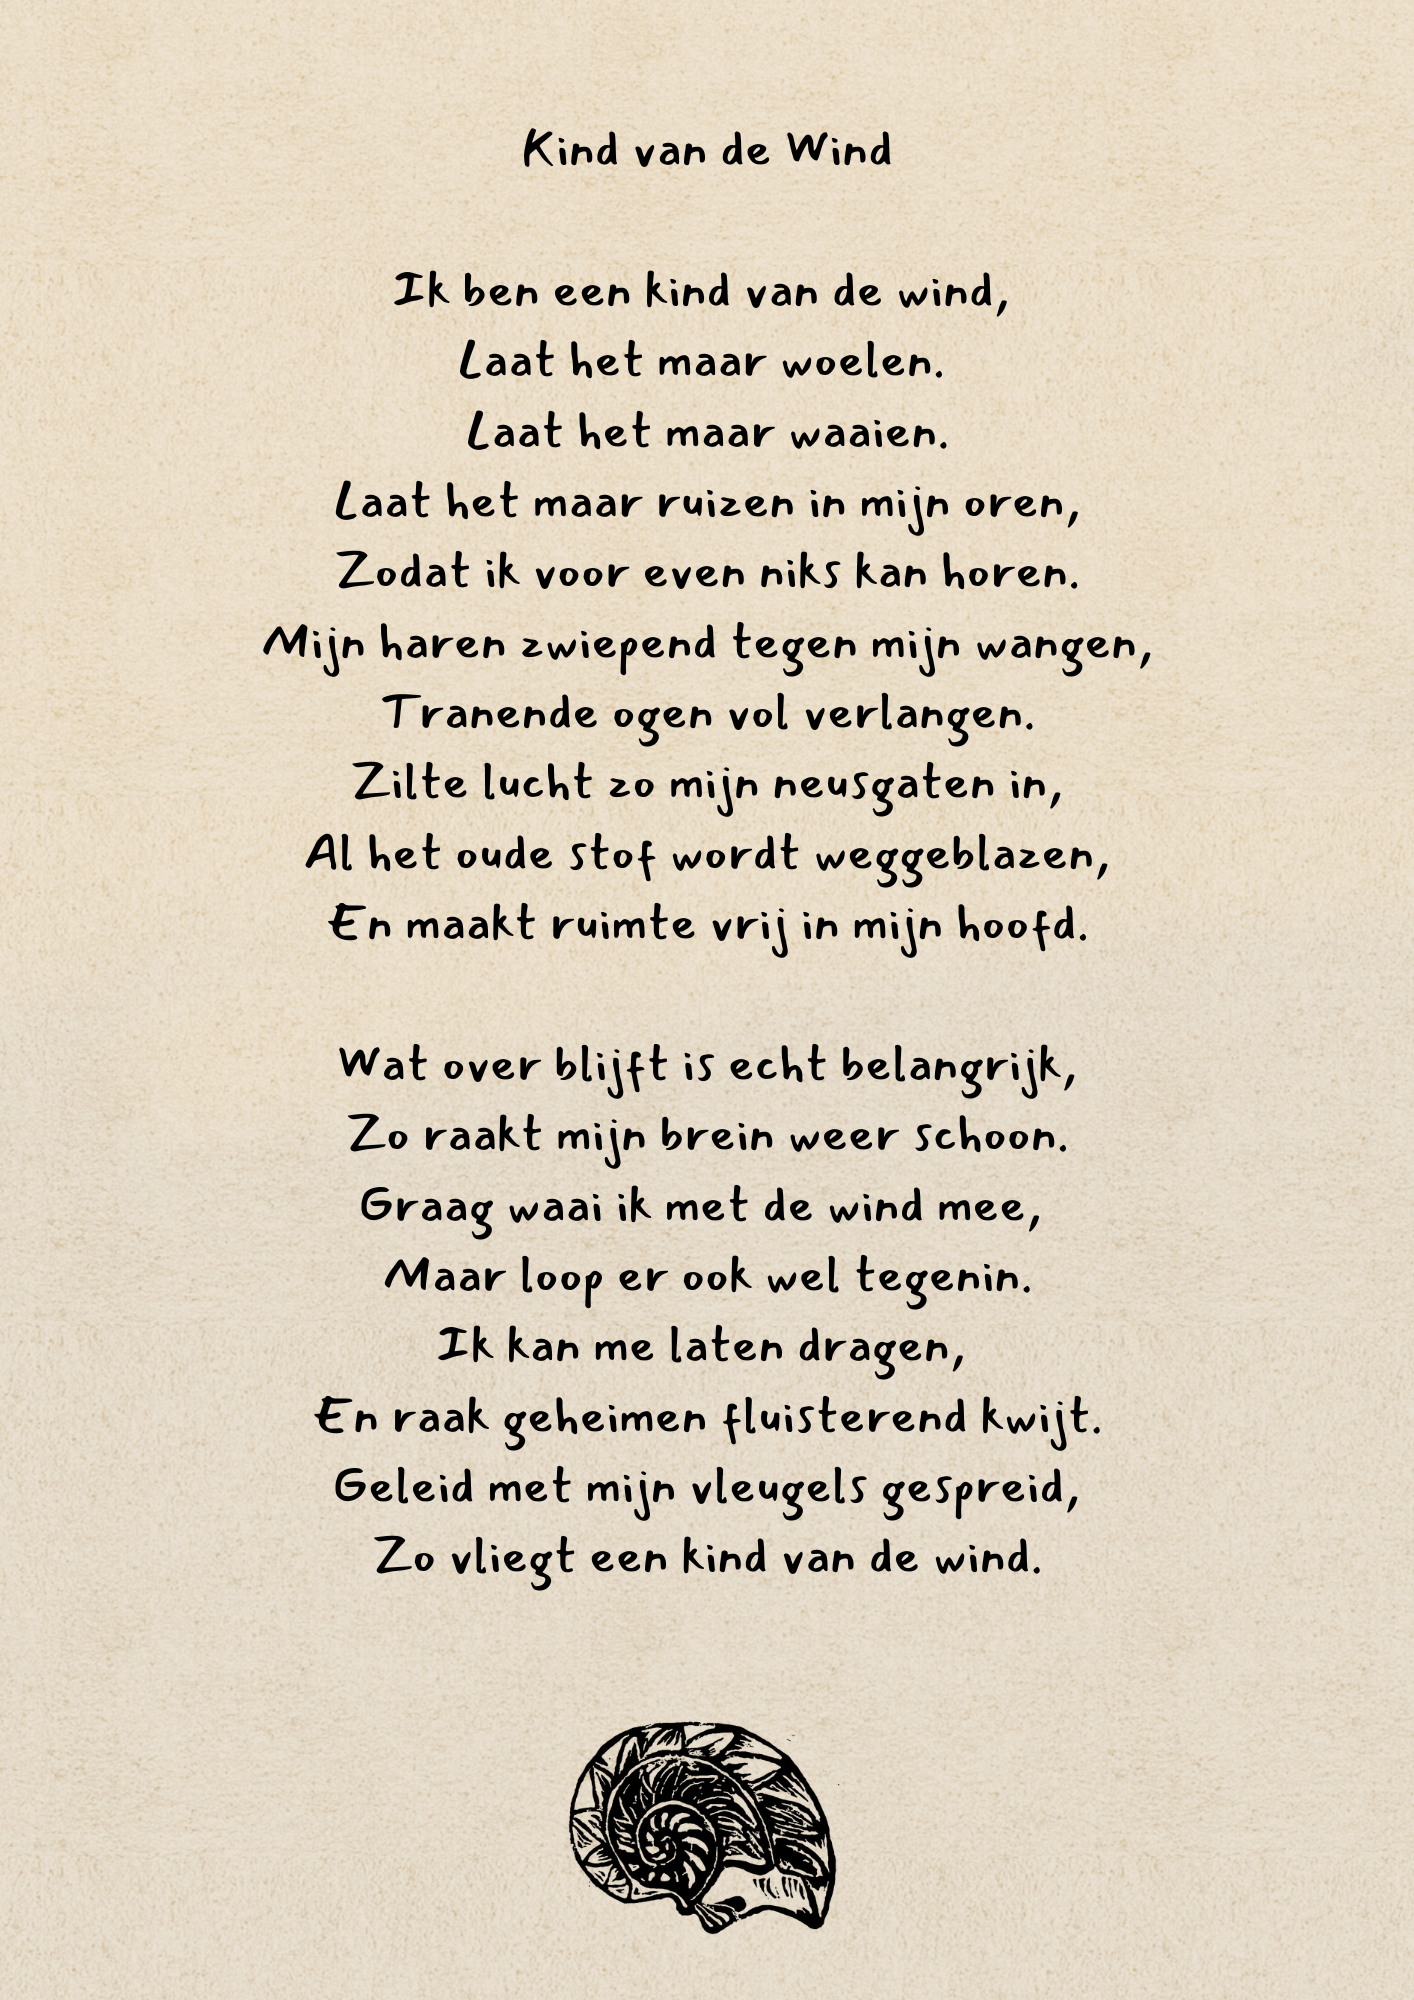 Kind van de Wind
Ik ben een kind van de wind,
Laat het maar woelen.
Laat het maar waaien.
Laat het maar ruizen in mijn oren,
Zodat ik voor even niks kan horen.
Mijn haren zwiepend tegen mijn wangen,
Tranende ogen vol verlangen.
Zilte lucht zo mijn neusgaten in,
Al het oude stof wordt weggeblazen,
En maakt ruimte vrij in mijn hoofd.
Wat over blijft is echt belangrijk,
Zo raakt mijn brein weer schoon.
Graag waai ik met de wind mee,
Maar loop er ook wel tegenin.
Ik kan me laten dragen,
En raak geheimen fluisterend kwijt.
Geleid met mijn vleugels gespreid,
Zo vliegt een kind van de wind.